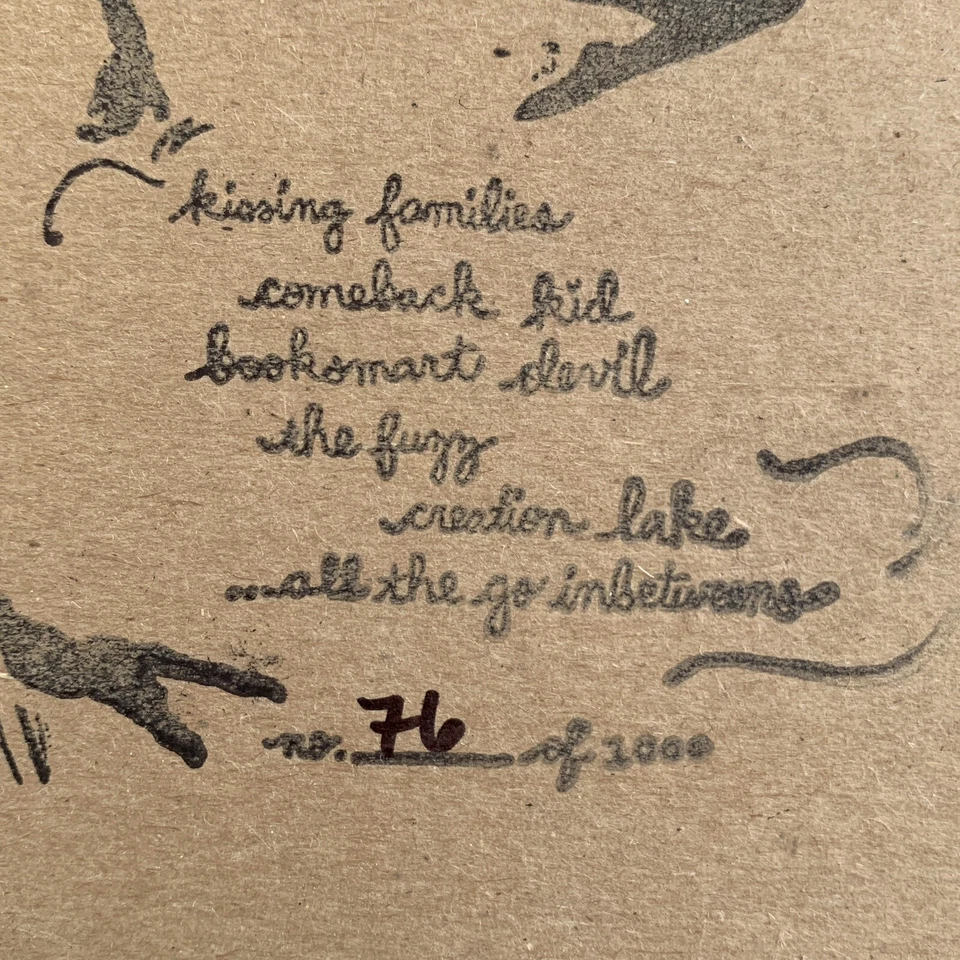 kissing families
comeback kid
booksmart devil
the fuzz
creation lake
...all the go inbetweens
no. 76 of 1000